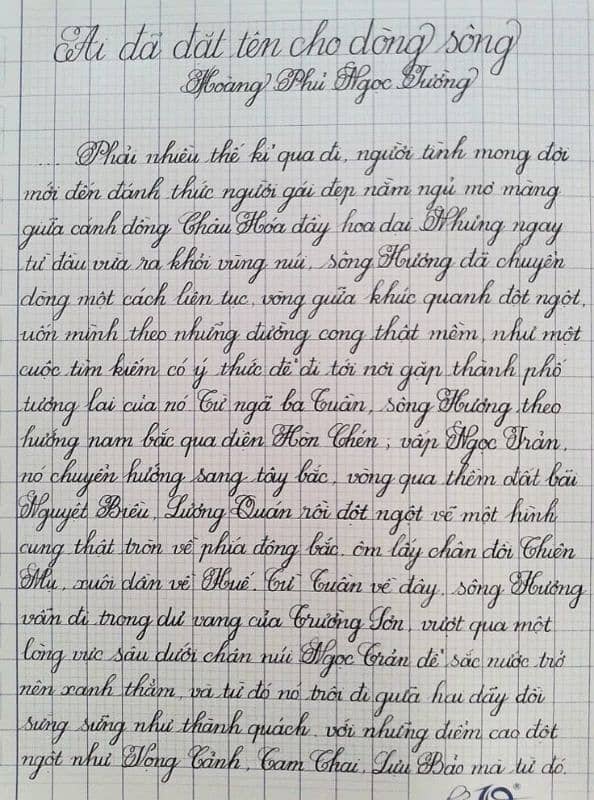 Ai đã đặt tên cho dòng sông
Hoàng Phủ Ngọc Tường
... Phải nhiều thế kỉ qua đi, người tình mong đợi
mới đến đánh thức người gái đẹp nằm ngủ mơ màng
giữa cánh đồng Châu Hóa đầy hoa dại Nhưng ngay
từ đầu vừa ra khỏi vùng núi, sông Hương đã chuyển
dòng một cách liên tục, vòng giữa khúc quanh đột ngột,
uốn mình theo những đường cong thật mềm, như một
cuộc tìm kiếm có ý thức để đi tới nơi gặp thành phố
tương lai của nó Từ ngã ba Tuần, sông Hương theo
hướng nam bắc qua điện Hòn Chén; vấp Ngọc Trản,
nó chuyển hướng sang tây bắc, vòng qua thềm đất bãi
Nguyệt Biều, Lương Quán rồi đột ngột vẽ một hình
cung thật tròn về phía đông bắc, ôm lấy chân đồi Thiên
Mụ, xuôi dần về Huế. Từ Tuần về đây, sông Hương
vẫn đi trong dư vang của Trường Sơn, vượt qua một
lòng vực sâu dưới chân núi Ngọc Trản để sắc nước trở
nên xanh thẳm, và từ đó nó trôi đi giữa hai dãy đồi
sừng sững như thành quách, với những điểm cao đột
ngột như Vọng Cảnh, Tam Thai, Lựu Bảo mà từ đó,